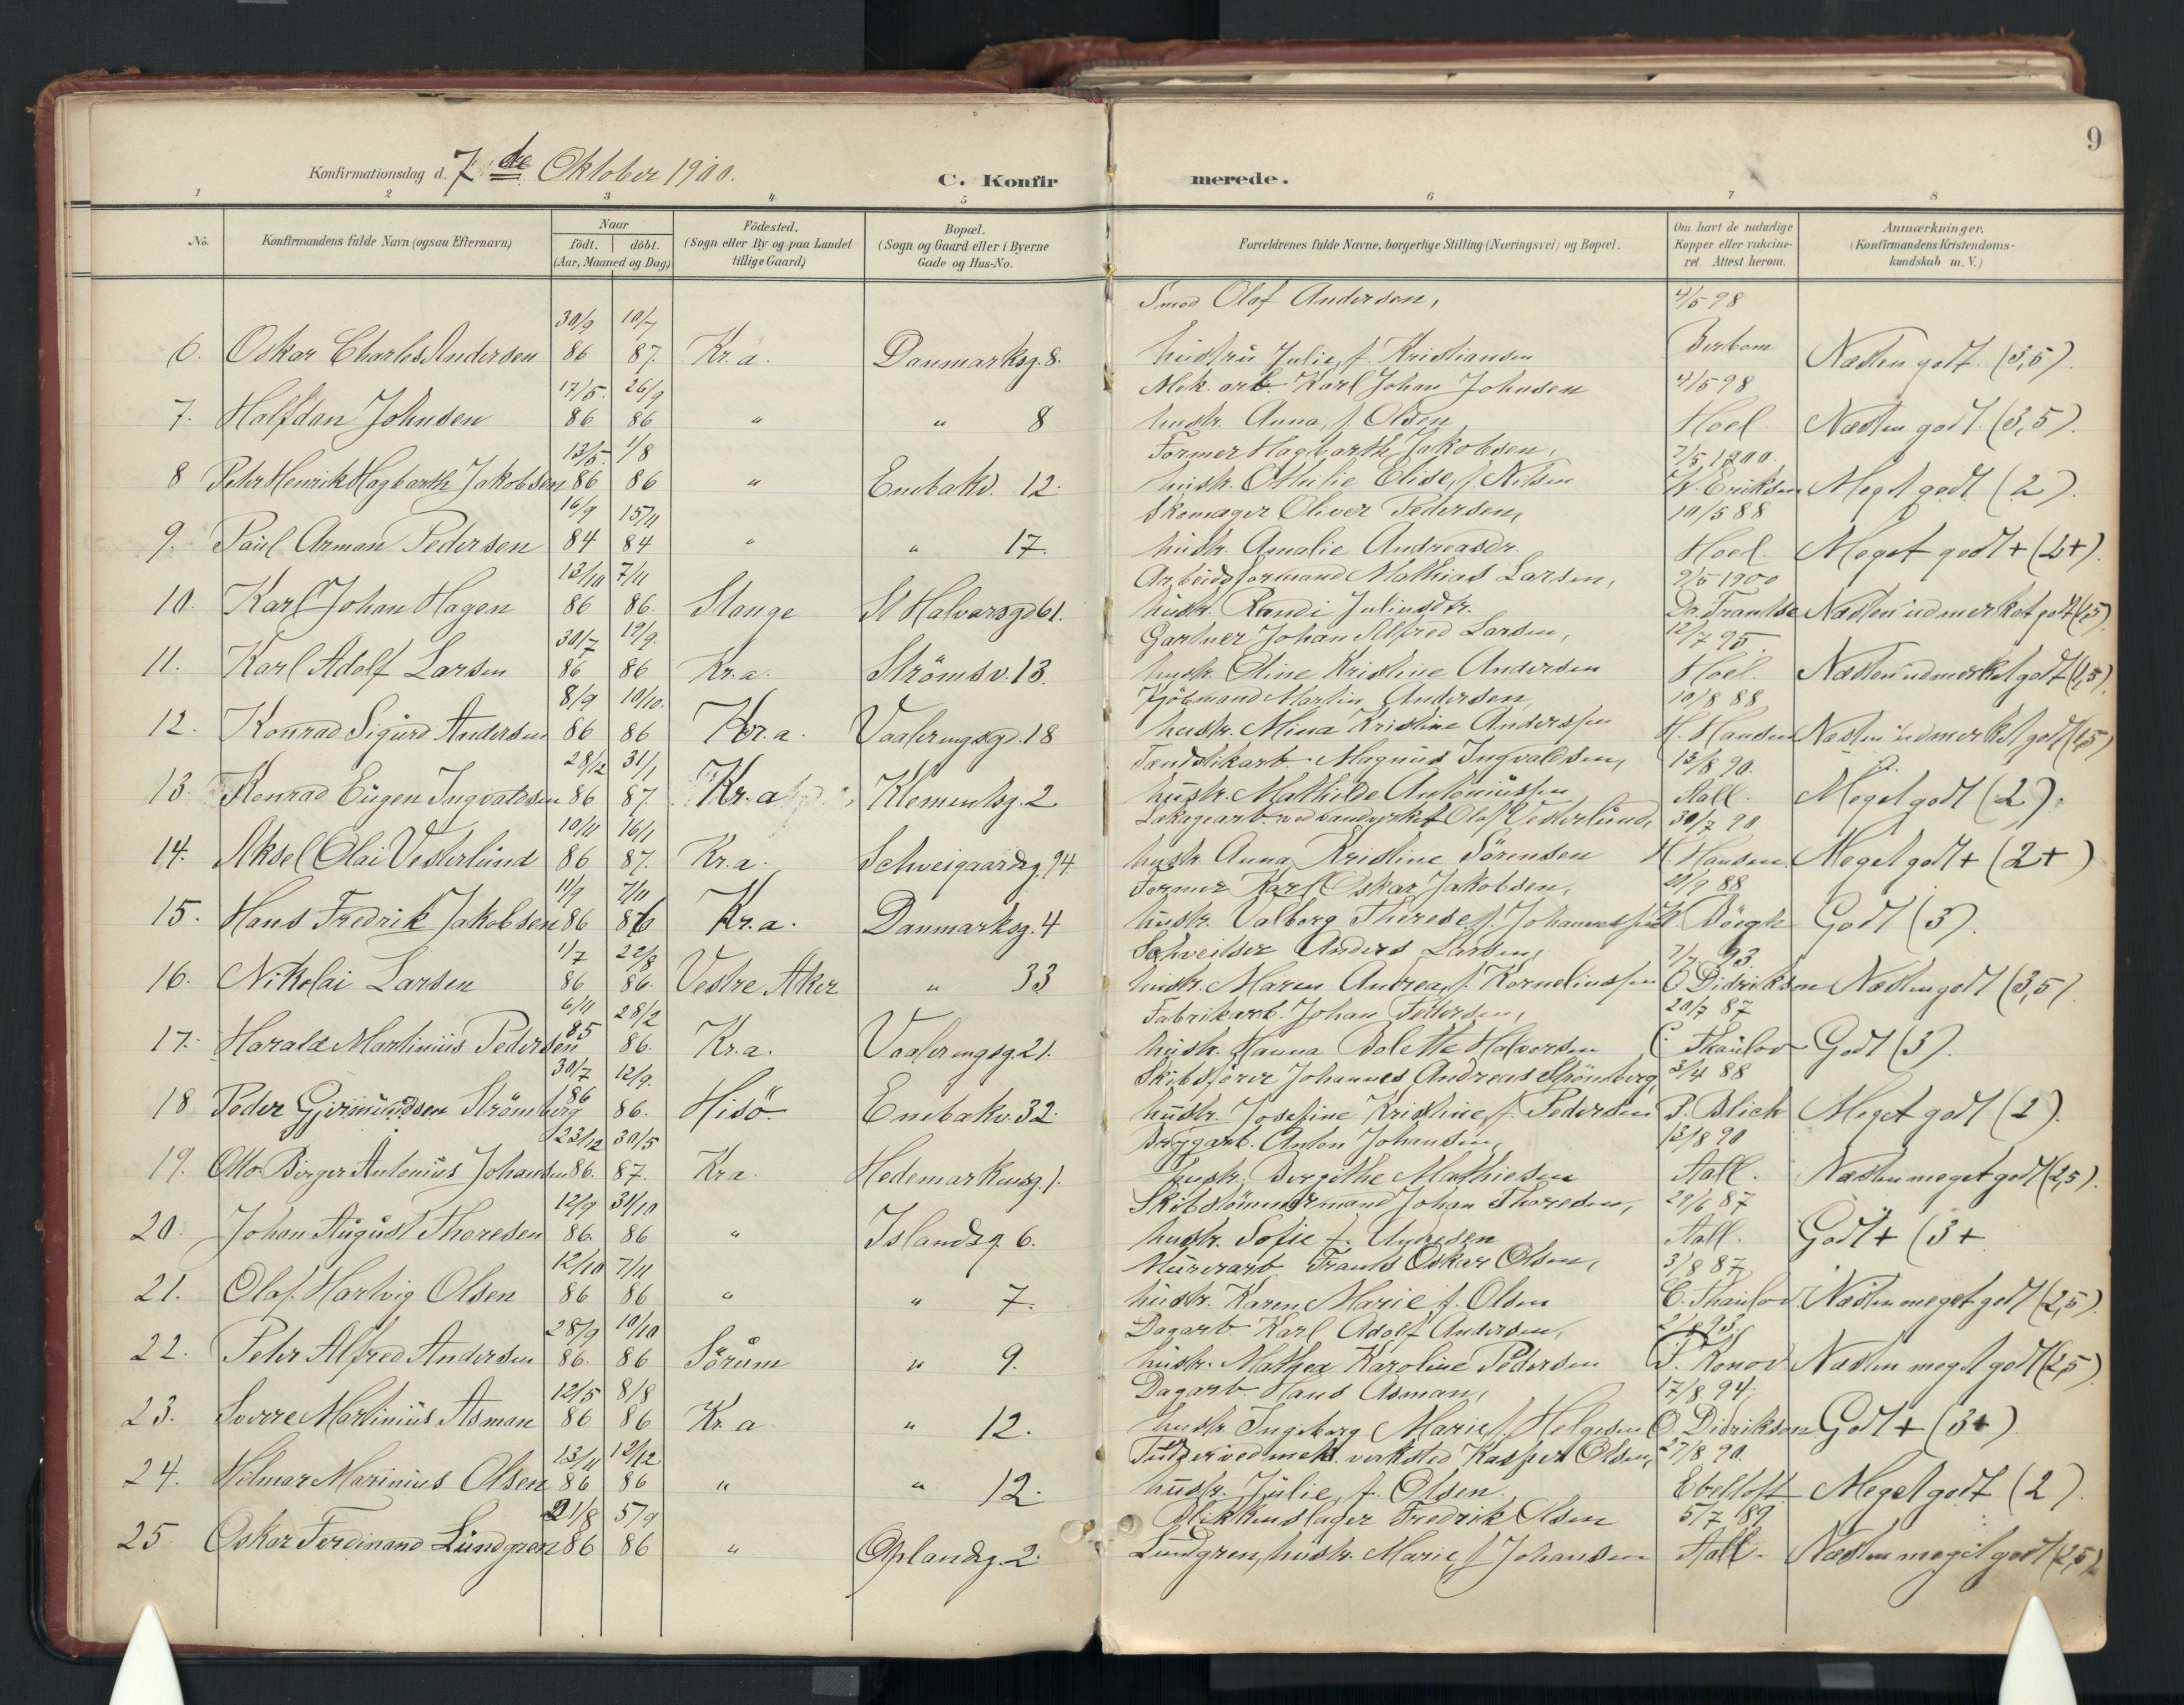 9
Konfirmationsdag d. 7de Oktober 1900.
C. Konfirmerede.
1 2 3 4 5 6 7 8
No.
Konfirmandens fulde Navn (ogsaa Efternavn)
Naar
födt. döbt.
(Aar, Maaned og Dag)
Födested.
(Sogn eller By og paa Landet
tillige Gaard)
Bopæl.
(Sogn og Gaard eller i Byerne
Gade og Hus-No.
Forældrenes fulde Navne, borgerlige Stilling (Næringsvei) og Bopæl.
Om havt de naturlige
Kopper eller vakcine-
ret. Attest herom.
Anmærkninger.
(Konfirmandens Kristendoms-
kundskab m. V.)
30/9 10/7 Smed Olaf Andersen, 4/5 98
6. Oskar Charles Andersen 86 87. Kr.a. Danmarksg. 8. hustru Julie, f. Kristiansen Berbom Næsten godt. (3,5).
17/5. 26/9 Mek. arb. Karl Johan Johnsen 4/5 98
7. Halfdan Johnsen 86 86 " " 8 hustr. Anna, f. Olsen Hoel Næsten godt. (3,5).
13/5. 1/8 Former Hagbarth Jakobsen, 7/5 1900.
8 Peter Henrik Hagbarth Jakobsen 86 86 " Enebakv. 12. hustr. Othilie Elise, f. Nilsen N. Eriksen Meget godt (2).
16/9 15/11 Skomager Oliver Pedersen, 10/5 88
9. Paul Arman Pedersen 84 84 " " 17. hustr. Amalie Andreasdr. Hoel Meget godt + (2+).
13/10 7/11 Arbeidsformand Mathias Larsen, 9/5 1900
10. Karl Johan Hagen 86 86. Stange St Halvarsgd 61. hustr. Randi Juliusdtr. Dr. Frantse Næsten udmerket godt (1,5)
30/7 19/9. Gartner Johan Alfred Larsen, 12/7 95.
11. Karl Adolf Larsen 86 86 Kr.a. Strömsv. 13. hustr. Oline Kristine Andersen Hoel. Næsten udmerket godt (1,5).
8/9 10/10. Kjöbmand Martin Andersen, 10/8 88
12. Konrad Sigurd Andersen 86 86 Kr.a. Vaaleringsgd. 18 hustr. Mina Kristine Anderssen H. Hansen Næsten udmerket godt (1,5)
28/12 31/1 Fændstikarb. Magnus Ingvaldsen, 13/8 90.
13. Konrad Eugen Ingvaldsen 86 87. Kr.a Klementsg. 2 hustr. Mathilde Antoniussen Aall. Meget godt (2).
10/11 16/1 Lakagearb. ved vandverket Olaf Vesterlund, 30/7 90
14. Aksel Olai Vesterlund 86 87. Kr.a. Schweigaardsg. 94. hustr. Anna Kristine Sörensen H. Hansen Meget godt + (2+)
11/9 7/11 Former Karl Oskar Jakobsen, 21/9 88
15. Hans Fredrik Jakobsen 86 86 Kr.a. Danmarksg. 4 hustr. Valborg Therese, f. Johannessen Börgh Godt (3).
1/7 22/8 Schveitser Anders Larsen, 7/7 93
16. Nikolai Larsen 86 86. Vestre Aker " 33 hustr. Maren Andrea, f. Korneliussen O Didriksen Næsten godt (3,5).
6/11 28/2 Fabrikarb. Johan Pettersen, 20/7 87
17. Harald Martinius Pedersen 85 86. Kr.a. Vaaleringsg. 21. hustr. Hanna Bolette Halvorsen C. Thaulov Godt (3).
30/7 12/9. Skibsförer Johannes Andreas Strömberg, 3/4 88
18 Peder Gjermundsen Strömberg 86 86. Hisö Enebakv. 32. hustr. Josefine Kristine f. Pedersen P. Blich Meget godt (2).
23/12 30/5 Brygarb. Anton Johansen, 13/8 90
19. Otto Birger Antonius Johansen 86. 87. Kr.a. Hedemarkensg. 1. hustr. Bergithe Mathiesen Aall. Næsten meget godt (2,5).
12/9 31/10 Skibstömmermand Johan Thoresen, 29/6 87
20. Johan August Thoresen 86. 86 " Islandsg. 6. hustr. Sofie f. Andresen Aall. Godt + (3+
12/10 7/11 Murerarb Frants Oskar Olsen, 3/8 87
21. Olaf Hartvig Olsen 86 86 " " 7. hustr. Karen Marie f. Olsen C. Thaulov Næsten meget godt (2,5).
28/9 10/10 Dagarb. Karl Adolf Andersen, 93.
22. Peter Alfred Andersen 86. 86 Sörum " 9. hustr. Mathea Karoline Pedersen T. Konow Næsten meget godt (2,5)
12/5 8/8 Dagarb. Hans Asman, 17/8. 94.
23. Sverre Martinius Asman 86 86 Kr. a " 12. hustr. Ingeborg Marie, f. Helgesen O. Didriksen Godt + (3+)
13/11 12/12 Pudser ved mek. verksted Kasper Olsen, 27/8 90.
24. Hilmar Marinius Olsen 86 86 " " 12. hustr. Julie, f. Olsen. Ebeltoft Meget godt (2).
21/8 5/9 Blikkenslager Fredrik Olsen 5/7 89
25. Oskar Ferdinand Lundgren 86 86 " Oplandsg. 2. Lundgren, hustr. Marie, f. Johansen Aall. Næsten meget godt (2,5)